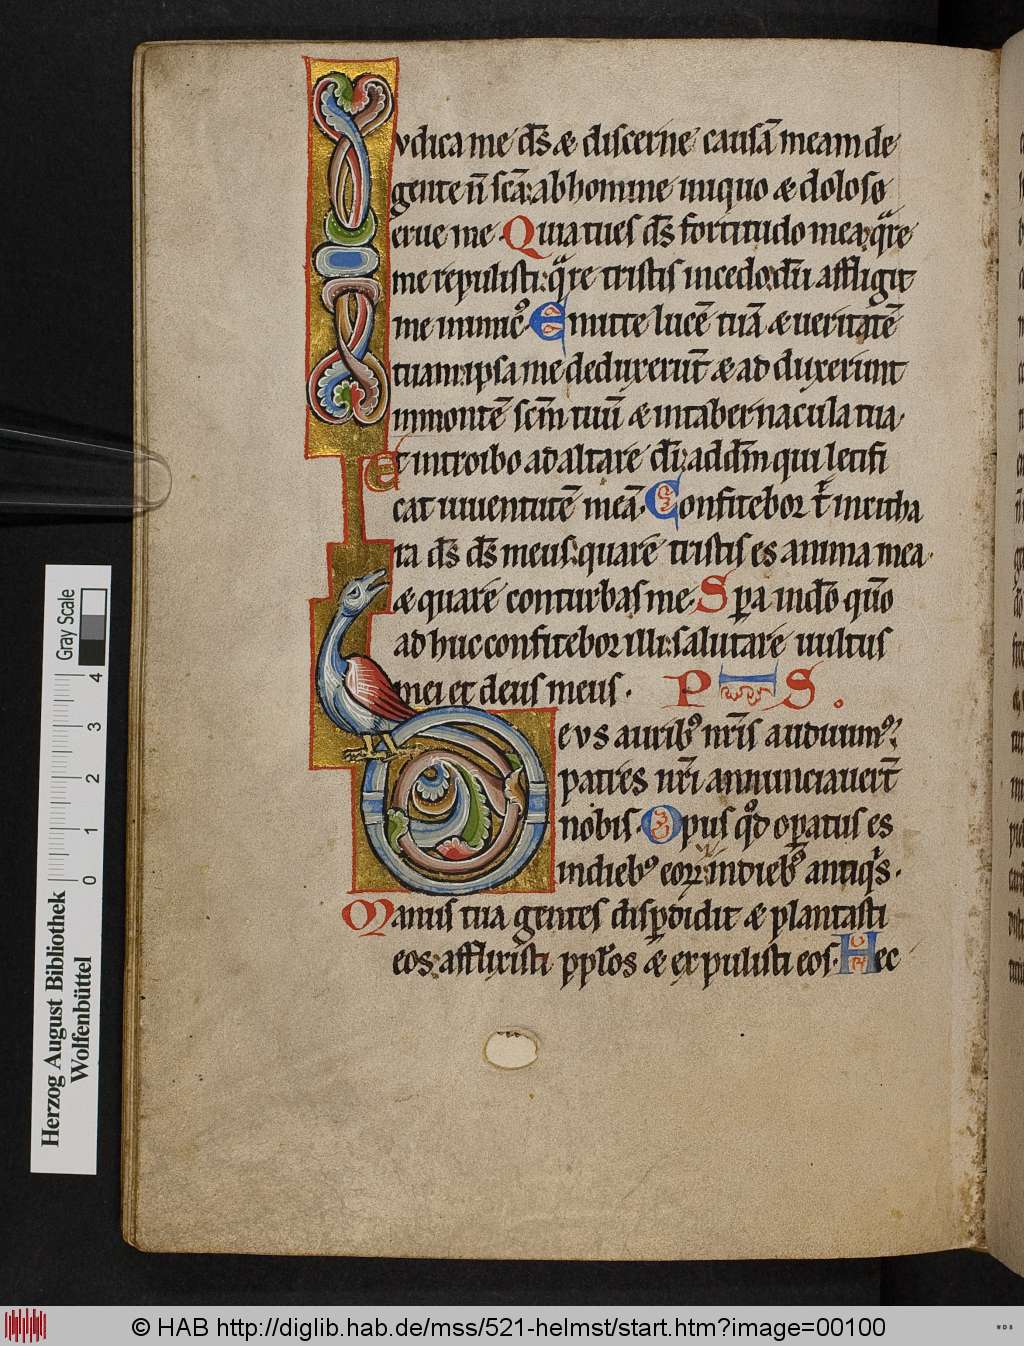 Iudica me ds̄ & discerne causā meam de
gente n̄ scā: ab homine iniquo & doloso
erue me Quia tu es ds̄ fortitudo mea: qͣre
me repulisti: qͣre tristis incedo: dū affligit
me inimicꝰ. Emitte lucē tuā & ueritatē
tuam: ipsa me deduxerūt & ad duxerunt
in montē scm̄ tuū & in tabernacula tua.
Et introibo ad altare dī: ad dm̄ qui letifi
cat iuuentutē meā. Confitebor tⁱ in citha
ra ds̄ ds̄ meus: quare tristis es anima mea.
& quare conturbas me. Spera in dō qm̄
ad huc confitebor illi: salutare uultus
mei et deus meus. PHS.
Deus auribꝰ nr̄is audiuimꝰ:
patres nr̄i annunciauerūt
nobis. Opus qd̄ oꝑatus es
in diebꝰ eoꝝ: in diebꝰ antiqⁱs.
Manus tua gentes disꝑdidit & plantasti
eos: afflixisti pplōs & expulisti eos. Hec
Herzog August Bibliothek
Wolfenbüttel
0 1 2 3 4
Gray Scale
© HAB http://diglib.hab.de/mss/521-helmst/start.htm?image=00100